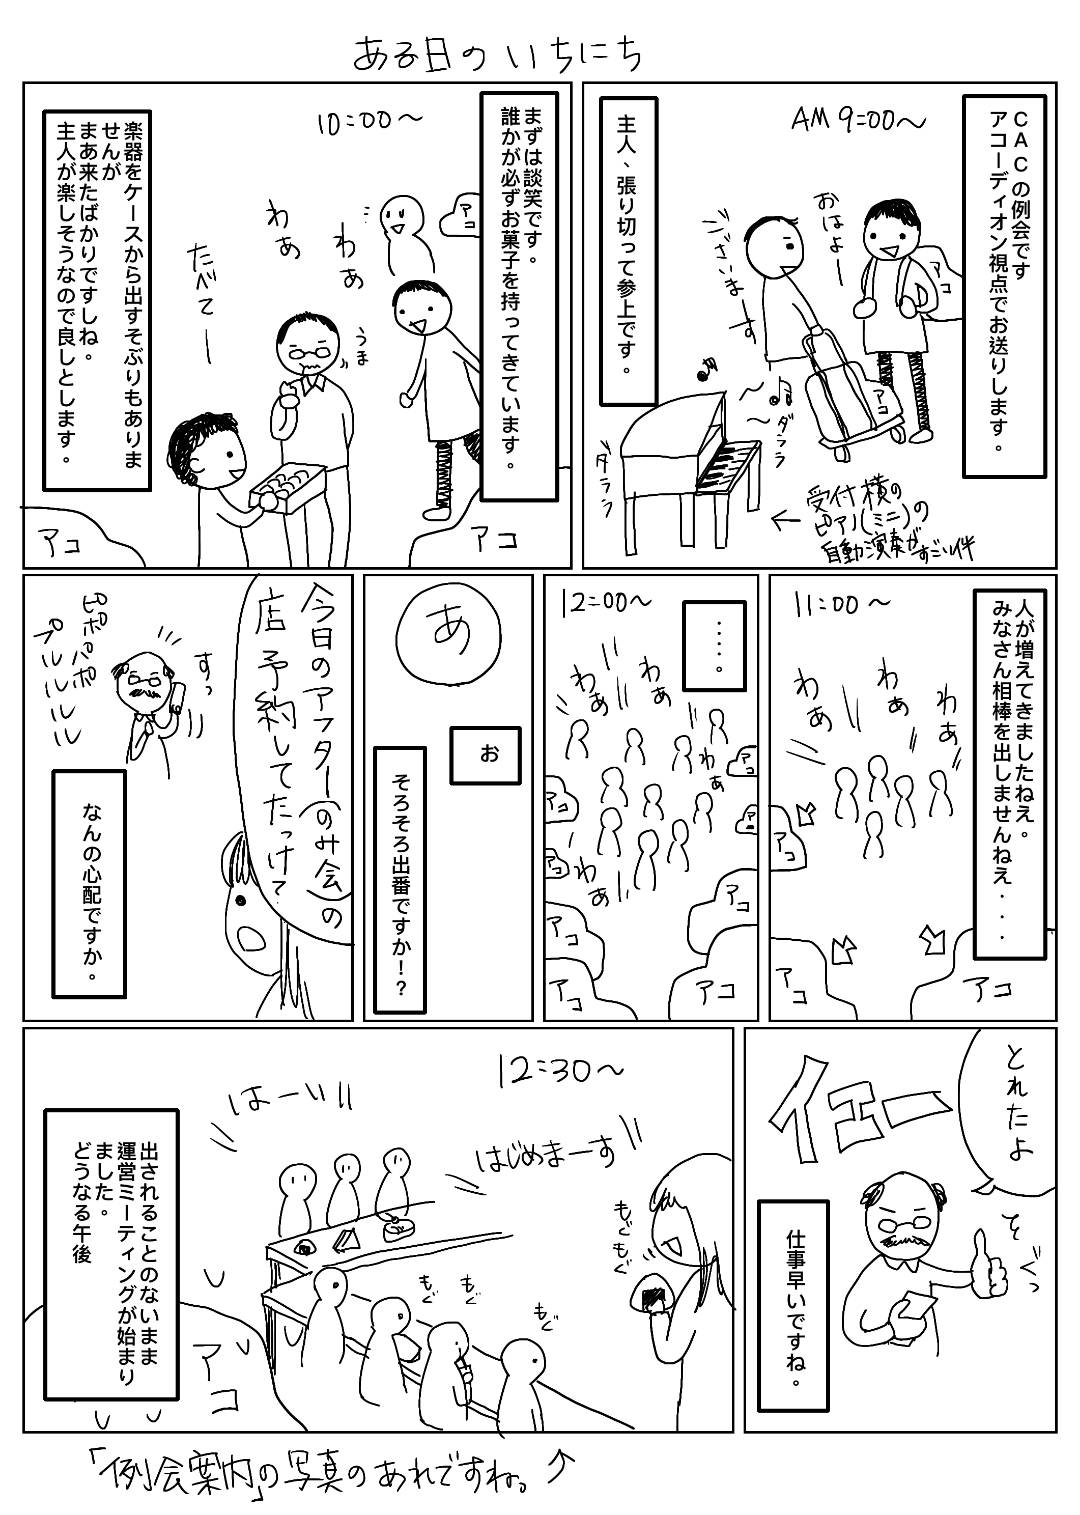 ある日のいちにち
CACの例会です
アコーディオン視点でお送りします。
AM 9:00〜
おはよー
ございまーす
アコ
アコ
主人、張り切って参上です。
ダララ
ダララ
←受付横の
ピアノ(ミニ)の
自動演奏がすごい件
まずは談笑です。
誰かが必ずお菓子を持ってきています。
10:00〜
アコ
わぁ
わぁ
うま
たべてー
アコ
アコ
楽器をケースから出すそぶりもありま
せんが
まあ来たばかりですしね。
主人が楽しそうなので良しとします。
人が増えてきましたねえ。
みなさん相棒を出しませんねえ....
11:00〜
わぁ
わぁ
わぁ
アコ
アコ
アコ
12:00〜
・・・・・。
わぁ
わぁ
わぁ
わぁ
アコ
ア
アコ
アコ
アコ
アコ
アコ
アコ
あ
お
そろそろ出番ですか!?
今日のアフター(のみ会)の
店予約してたっけ?
すっ
ピポパポ
プルルルル
なんの心配ですか。
とれたよ
イエー
ぐっ
仕事早いですね。
12:30〜
はじめまーす
はーい!!
もぐもぐ
もぐ
もぐ
もぐ
アコ
出されることのないまま
運営ミーティングが始まり
ました。
どうなる午後
「例会案内」の写真のあれですね。↑